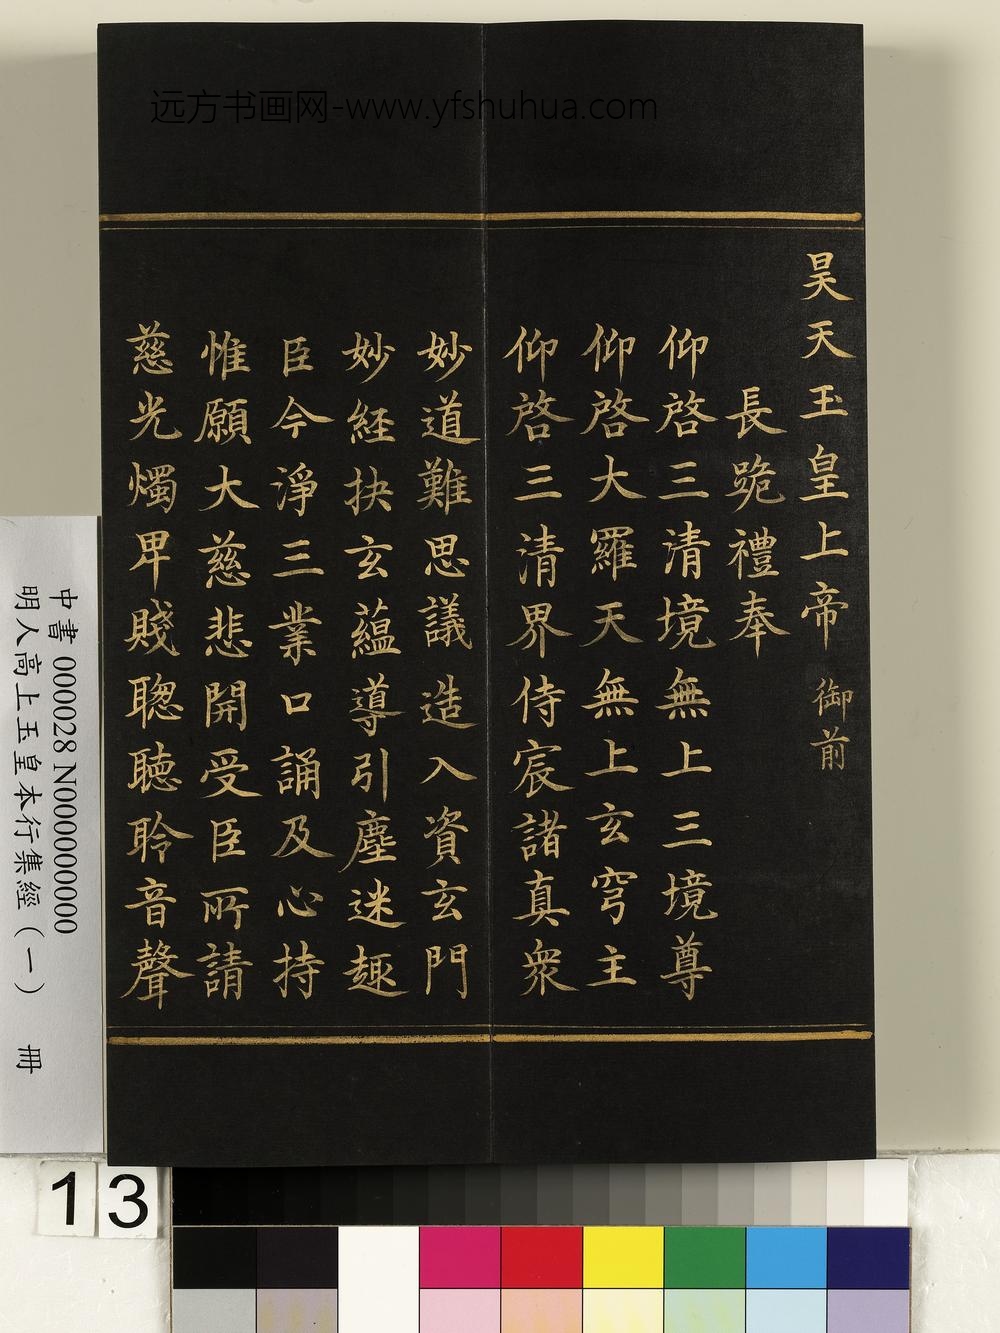 远方书画网-www.yfshuhua.com
昊天玉皇上帝 御前
長跪禮奉
仰啓三清境無上三境尊
仰啓大羅天無上玄穹主
仰啓三清界侍宸諸真衆
妙道難思議造入資玄門
妙經抉玄蘊導引塵迷趣
臣今淨三業口誦及心持
惟願大慈悲開受臣所請
慈光燭卑賤聰聽聆音聲
中書 000028 N000000000
明人高上玉皇本行集經(一) 冊
13